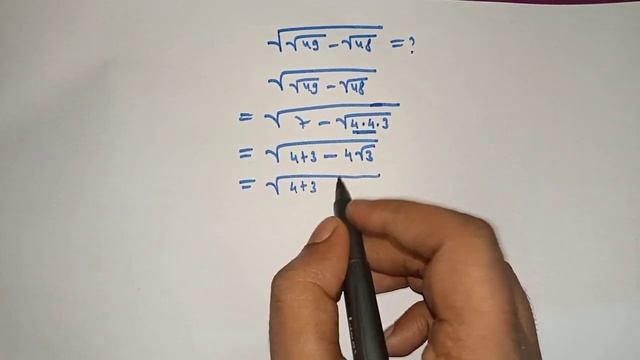 √(√49 - √48) = ?
√(√49 - √48)
= √(7 - √(4·4·3))
= √(4+3 - 4√3)
= √(4+3